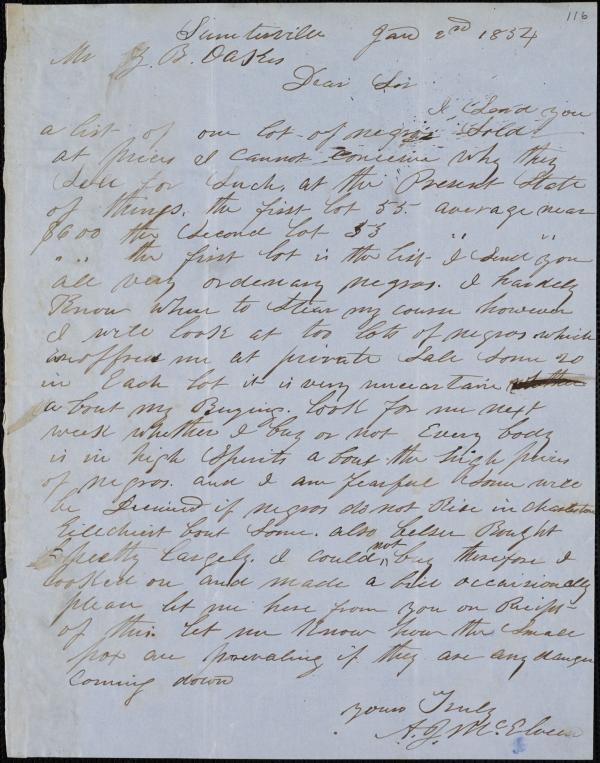 116
Sumterville Jan 2nd 1854
Mr Z. B. Oakes
Dear Sir
I Send you
a list of one lot of negros Sold
at prices I cannot conceive why they
Sell for Such, at the Present State
of things. the first lot 55 average near
$600 the Second lot 53 " "
" " the first lot is the list I Send you
all very ordenary negros. I hardely
Know where to Stear my course however
I will look at too lots of negros which
is offred me at private Sale Some 20
in Each lot it is very uncertain
about my Buying. look for me next
week whether I buy or not Every body
is in high Spirits about the high prices
of negros. and I am fearful Some will
be if negros do not Rise in charleston
Gilchrist bout Some. also belser Bought
pretty largely. I could not buy therefore I
looked on and made a bid occaisionally
please let me here from you on Recipt
of this. let me Know how the Small
pox are prevaling if they are any danger
Coming down
yours Truly
A. J. McElveen